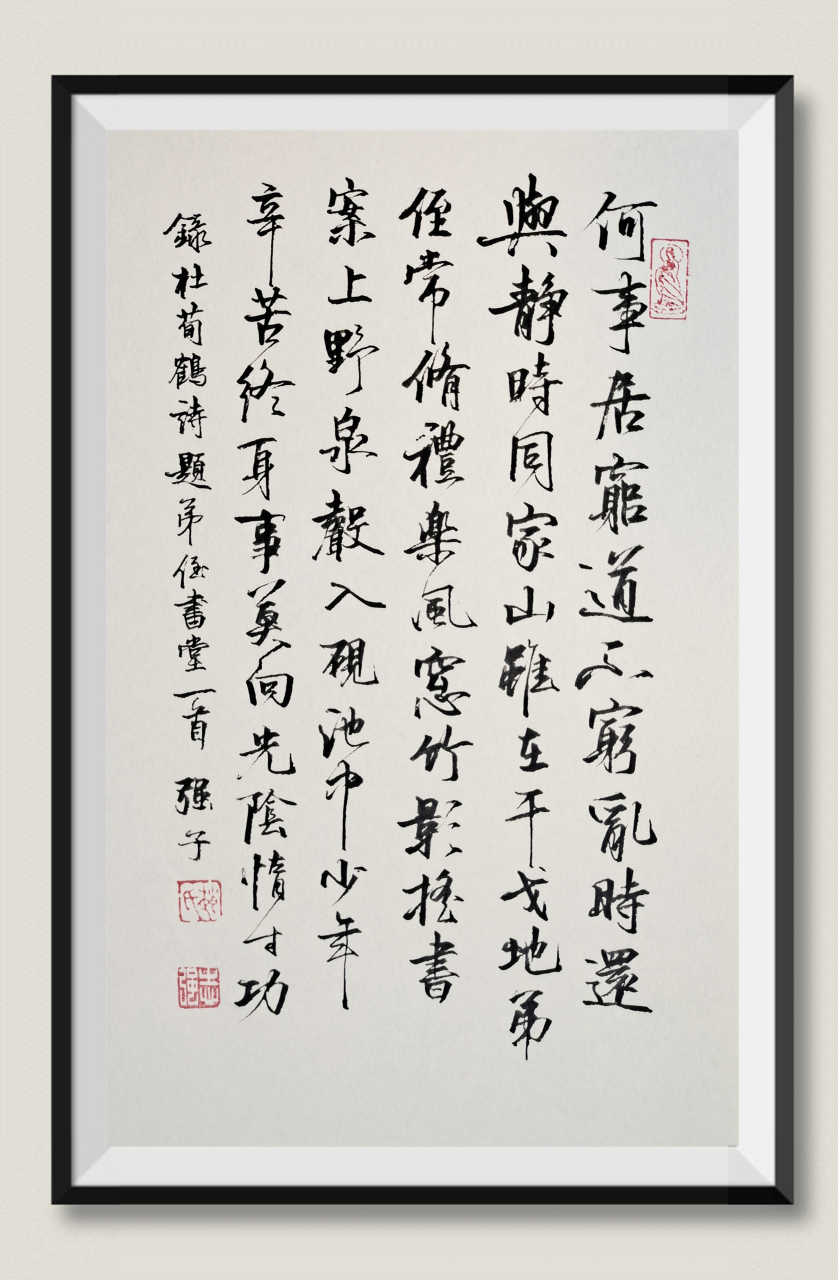 何事居窮道不窮亂時還
與靜時同家山雖在干戈地弟
侄常脩禮樂風窓竹影搖書
案上野泉聲入硯池中少年
辛苦終身事莫向光陰惰寸功
錄杜荀鶴詩題弟侄書堂一首 强子
志强